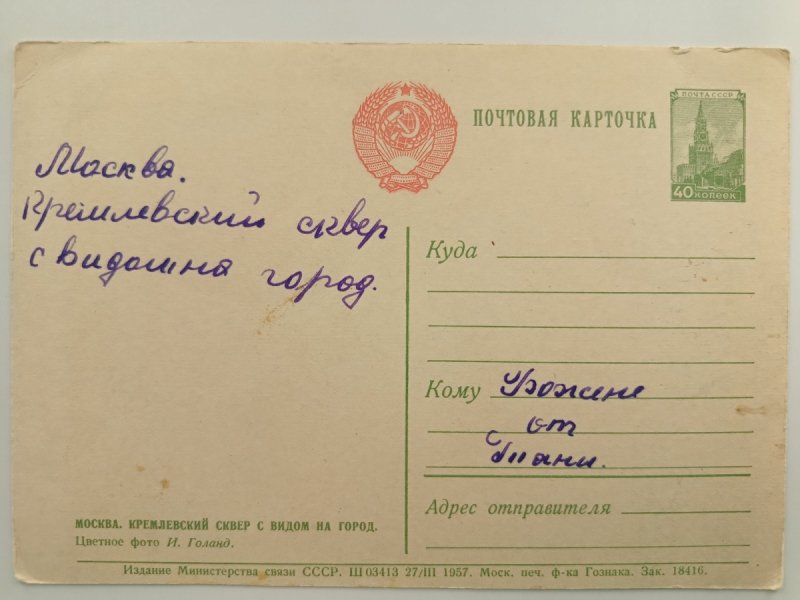 ПОЧТА СССР
ПОЧТОВАЯ КАРТОЧКА
40 КОПЕЕК
Москва.
Кремлевский сквер
с видом на город.
Куда
Кому
от
Тани.
Адрес отправителя
МОСКВА. КРЕМЛЕВСКИЙ СКВЕР С ВИДОМ НА ГОРОД.
Цветное фото И. Голанд.
Издание Министерства связи СССР. Ш 03413 27/III 1957. Моск. печ. ф-ка Гознака. Зак. 18416.